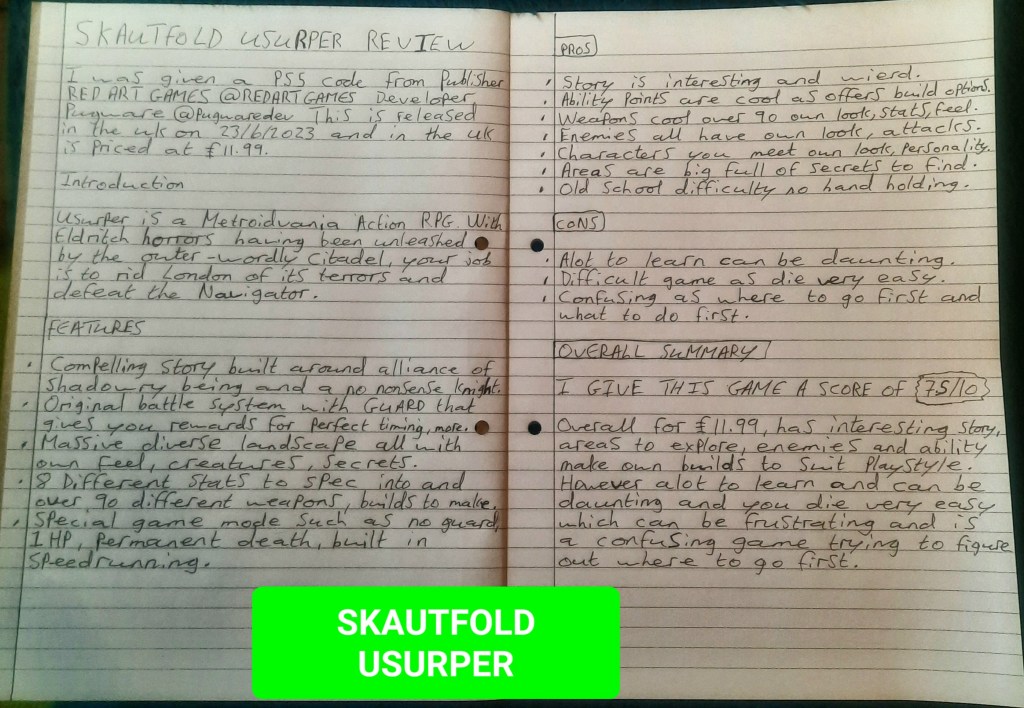 SKAUTFOLD USURPER REVIEW
I was given a PS5 code from Publisher
RED ART GAMES @REDARTGAMES Developer
Pugware @Pugwaredev This is released
in the uk on 23/6/2023 and in the uk
is Priced at £11.99.
Introduction
Usurper is a Metroidvania Action RPG. With
Eldritch horrors having been unleashed
by the outer-wordly Citadel, your job
is to rid London of its terrors and
defeat the Navigator.
FEATURES
· Compelling Story built around alliance of
shadowry being and a no nonsense knight.
· Original battle system with GUARD that
gives you rewards for Perfect timing, more.
· Massive diverse landscape all with
own feel, creatures, secrets.
· 8 Different Stats to Spec into and
over 90 different weapons, builds to make.
· Special game mode such as no guard,
1 HP, Permanent death, built in
Speedrunning.
PROS
· Story is interesting and wierd.
· Ability Points are cool as offers build options.
· Weapons cool over 90 own look, Stats, feel.
· Enemies all have own look, attacks.
· Characters you meet own look, Personality.
· Areas are big full of secrets to find.
· Old School difficulty no hand holding.
CONS
· Alot to learn can be daunting.
· Difficult game as die very easy.
· Confusing as where to go first and
what to do first.
OVERALL SUMMARY
I GIVE THIS GAME A SCORE OF {7.5/10}
Overall for £11.99, has interesting story,
areas to explore, enemies and ability
make own builds to Suit Playstyle.
However alot to learn and can be
daunting and you die very easy
which can be frustrating and is
a confusing game trying to figure
out where to go first.
SKAUTFOLD
USURPER